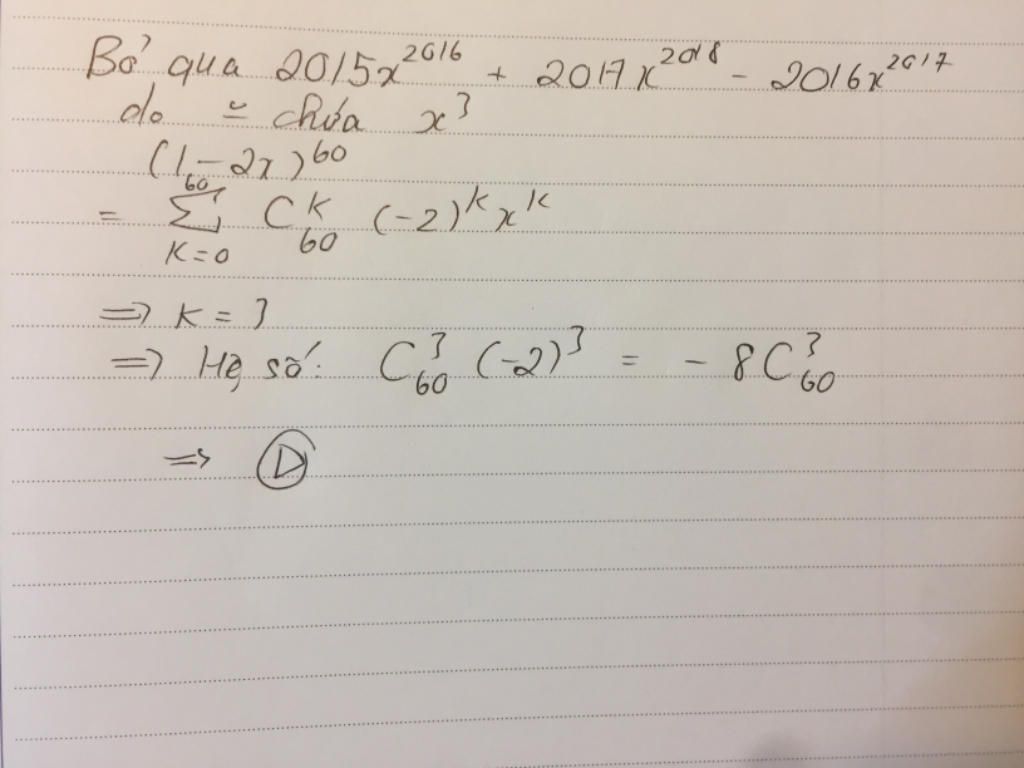 Bỏ qua 2015x^2016 + 2017x^2018 - 2016x^2017
do ≌ chứa x^3
(1-2x)^60
= ∑_{K=0}^{60} C_60^K (-2)^K x^K
=> K = 3
=> Hệ số: C_60^3 (-2)^3 = - 8C_60^3
=> D